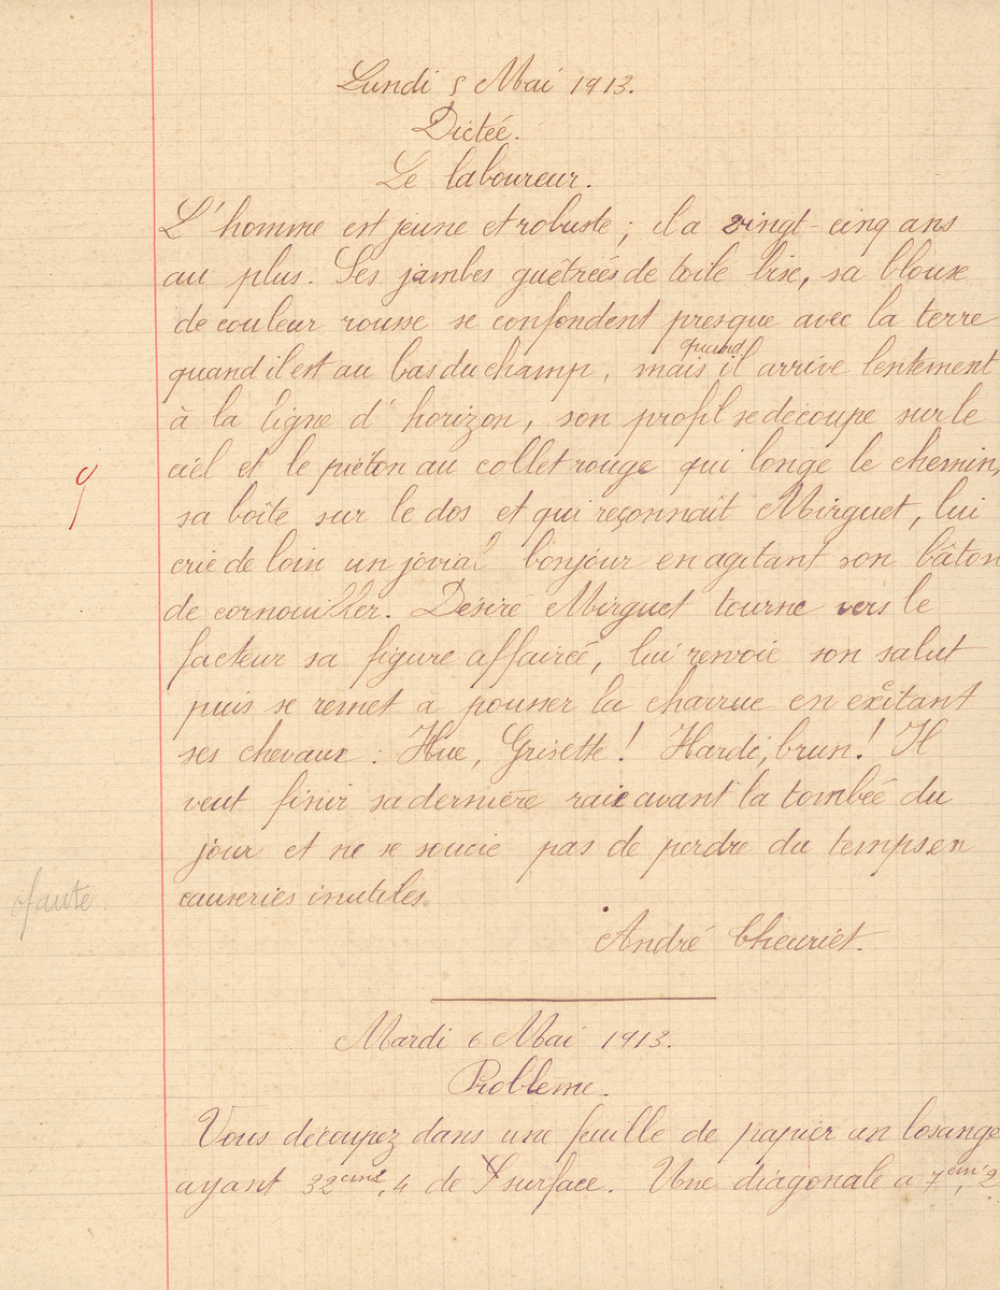 Lundi 5 Mai 1913.
Dictée.
Le laboureur.
L'homme est jeune et robuste ; il a vingt-cinq ans
au plus. Ses jambes guêtrées de toile bise, sa blouse
de couleur rousse se confondent presque avec la terre
quand il est au bas du champ, mais quand il arrive lentement
à la ligne d'horizon, son profil se découpe sur le
ciel et le piéton au collet rouge qui longe le chemin,
9
sa boîte sur le dos et qui reçonnaît Mirguet, lui
crie de loin un jovial bonjour en agitant son bâton
de cornouiller. Désiré Mirguet tourne vers le
facteur sa figure affairée, lui renvoie son salut
puis se remet à pousser la charrue en excitant
ses chevaux : Hue, Grisette ! Hardi, brun ! Il
veut finir sa dernière raie avant la tombée du
jour et ne se soucie pas de perdre du temps en
0 faute.
causeries inutiles.
André Theuriet.
Mardi 6 Mai 1913.
Problème.
Vous découpez dans une feuille de papier un losange
ayant 32cm2,4 de surface. Une diagonale a 7cm,2